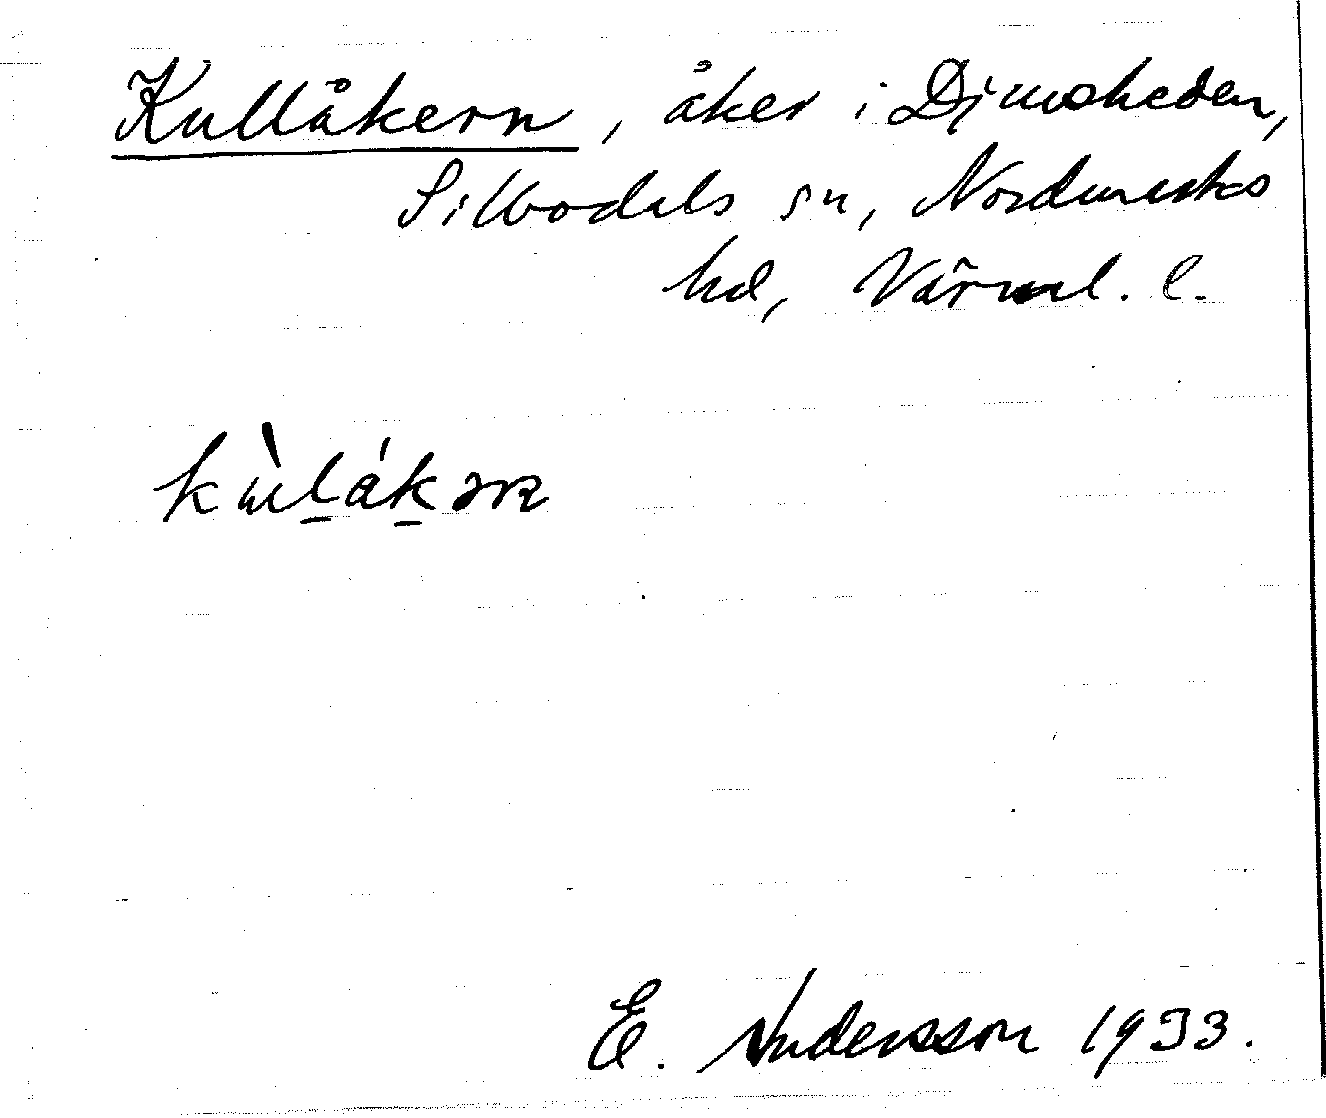 Kullåkern, åker i Djuvsheden,
Silbodals sn, Nordmarks
hd, Värml. l.
kùlákəɴ
E. Andersson 1933.